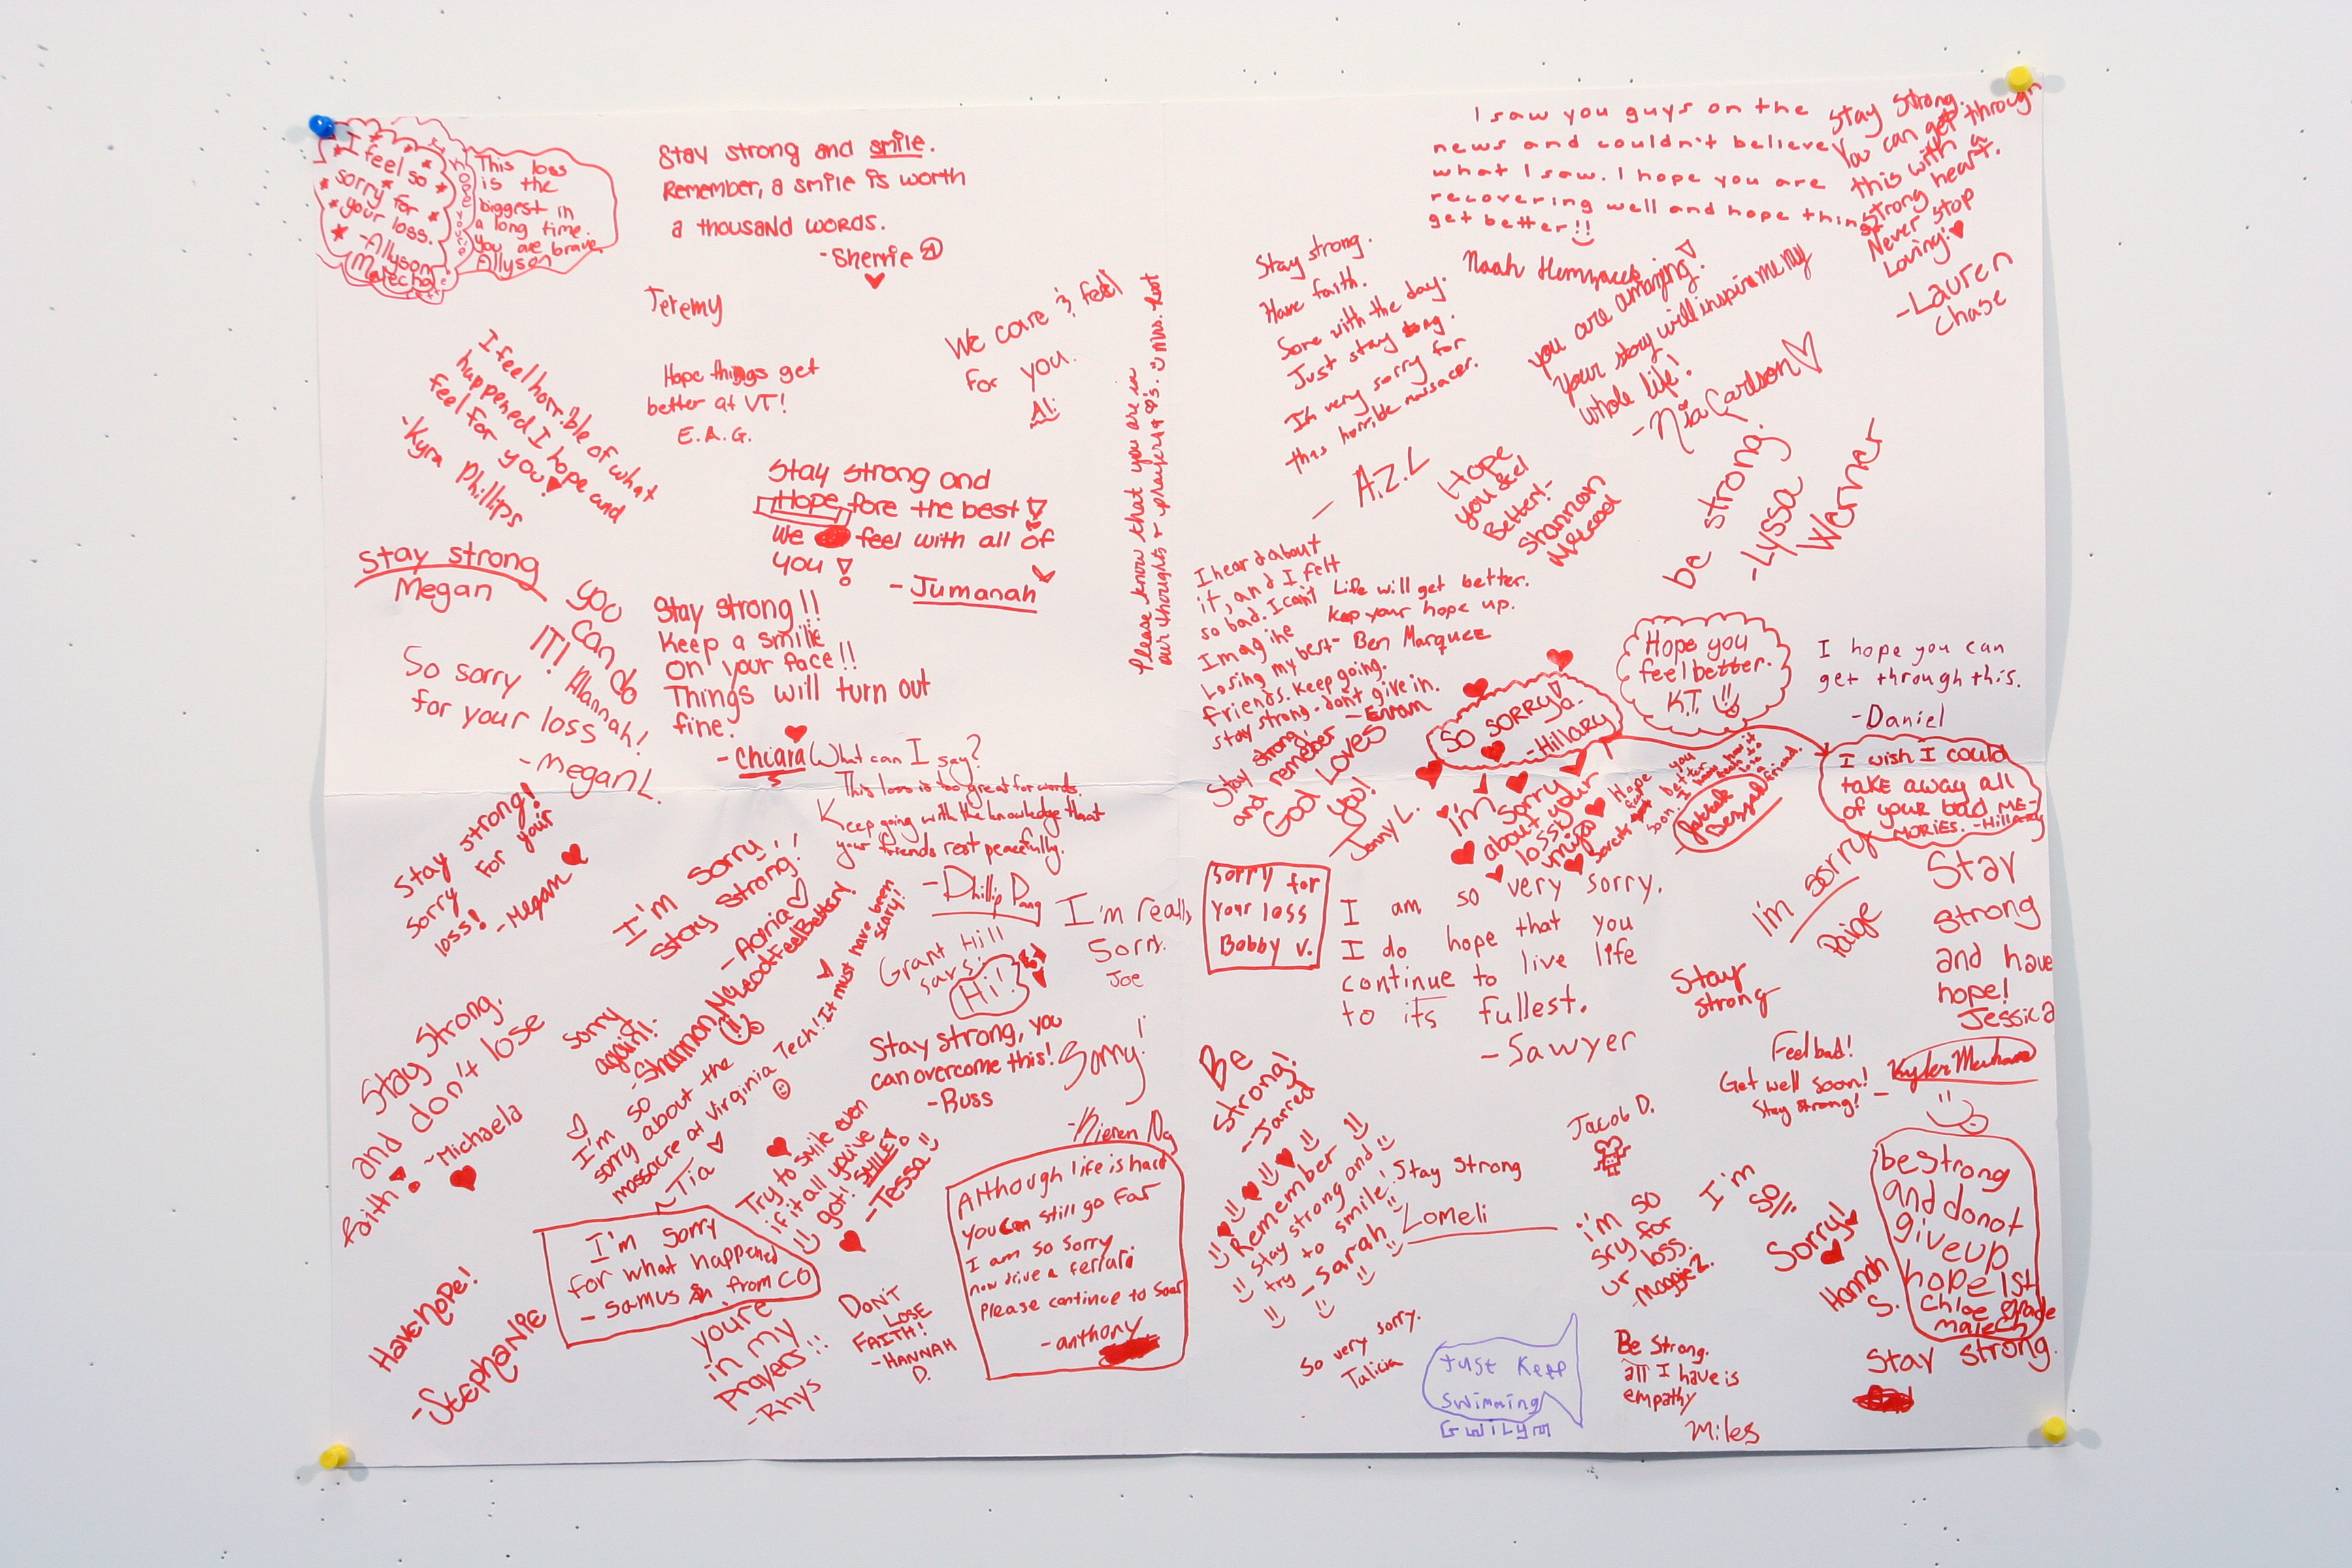 I feel so
sorry for
your loss.
-Allyson
Malecha
This loss
is the
biggest in
a long time.
you are brave.
Allyson
Stay strong and smile.
Remember, a smile is worth
a thousand words.
-Sherrie
Jeremy
Hope things get
better at VT!
E.A.G.
We care & feel
for you.
Ali
Please know that you are in
our thoughts & prayers
Mrs. Root
I feel horrible of what
happened I hope and
feel for you!
-Kyra Phillips
Stay strong and
Hope fore the best!
We feel with all of
you!
-Jumanah
Stay strong
Megan
You
can do
IT!
Alannah!
So sorry
for your loss
-Megan L.
Stay strong!!
Keep a smile
on your face!!
Things will turn out
fine.
-Chiara
What can I say?
This loss is too great for words.
Keep going with the knowledge that
your friends rest peacefully.
-Phillip Pang
Stay strong!
Sorry for your
loss!
-Megan
I'm sorry!
Stay strong!
-Adria
Feel Better!
Sorry
again!
-Shannon Macool
Grant Hill
says:
Hi!
I'm really
Sorry.
Joe
Stay Strong.
and don't lose
faith!
-Michaela
I'm so
sorry about the
massacre at Virginia Tech! It must have been
scary!
~Tia
Stay strong, you
can overcome this!
-Russ
Sorry!
-Kieren Ng
Try to smile even
if it all you've
got! SMILEY
-Tessa
I'm sorry
for what happened
- Samus from CO
Have hope!
-Stephanie
you're
in my
prayers!!
-Rhys
DON'T
LOSE
FAITH!
-HANNAH
D.
Although life is hard
you can still go far
I am so sorry
now drive a ferrari
Please continue to soar
-anthony
I saw you guys on the
news and couldn't believe
what I saw. I hope you are
recovering well and hope things
get better!!
Noah
Stay strong.
You can get through
this with a
strong heart.
Never stop
Loving!
-Lauren
Chase
Stay strong.
Have faith.
Sore with the day.
Just stay
I'm very sorry for
this horrible massacer.
- A.Z.L
you are amazing!
Your story will inspire me my
whole life!
-Nia Carlson
Hope
you feel
Better!-
Shannon
Macool
be strong.
-Lyssa
Werner
I heard about
it, and I felt
so bad. I can't
Imagine
Losing my best
friends. Keep going.
stay strong. don't give in.
-Erram
Life will get better.
keep your hope up.
- Ben Marquez
Hope you
feel better.
K.T.
I hope you can
get through this.
-Daniel
SO SORRY!
-Hillary
I wish I could
take away all
of your bad ME-
MORIES. -Hillary
Stay strong,
and remeber
God Loves
you!
Jenny L.
I'm sorry
about your
loss
Hope you
feel better
soon. I
know how it
feels to
lose a
friend.
Sorry for
your loss
Bobby V.
I am so very sorry.
I do hope that you
continue to live life
to its fullest.
-Sawyer
I'm sorry
Paige
Stay
strong
and have
hope!
Jessica
Stay
strong
Feel bad!
Get well soon!
Stay strong! -
Be
strong!
-Jarred
Jacob D.
Remember
stay strong and
try to smile!
-Sarah
Stay strong
Lomeli
i'm so
sry for
ur loss.
-Maggie Z.
I'm
so
Sorry!
Hannah
S.
be strong
and donot
give up
hope 1st
Chloe grade
Malecha
So very sorry.
Talicia
Just Keep
Swimming
Gwilym
Be Strong.
all I have is
empathy
Miles
Stay strong.